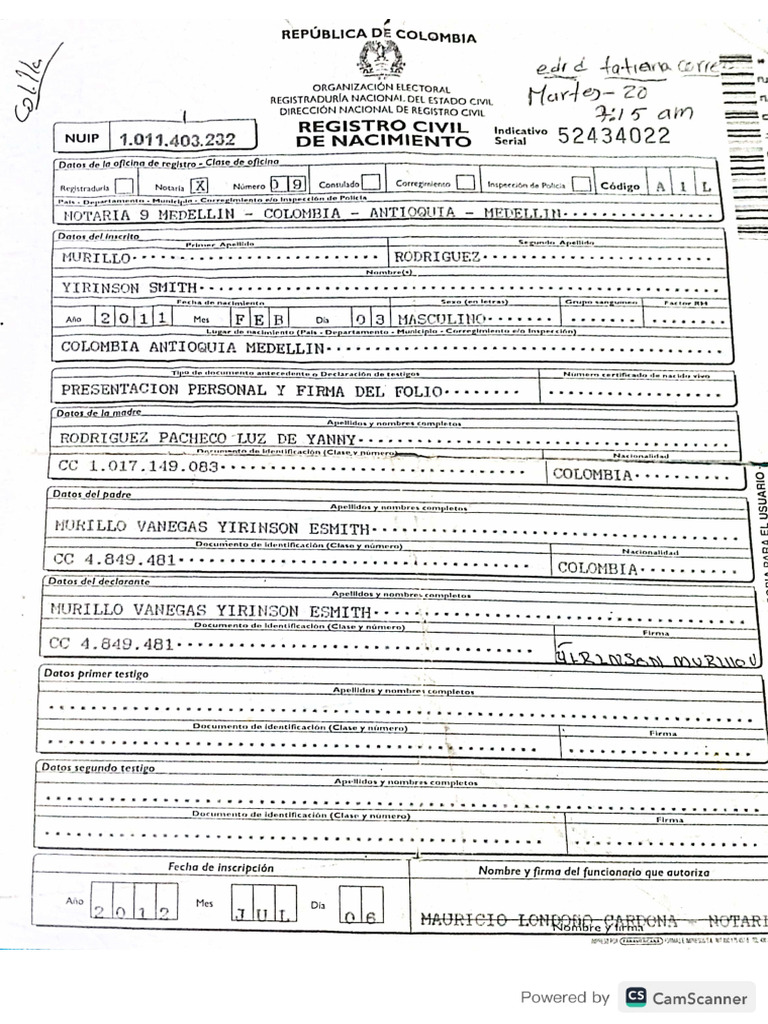 REPÚBLICA DE COLOMBIA
ORGANIZACIÓN ELECTORAL
REGISTRADURÍA NACIONAL DEL ESTADO CIVIL
DIRECCIÓN NACIONAL DE REGISTRO CIVIL
Martes-20
7:15 am
NUIP 1.011.403.232
REGISTRO CIVIL
DE NACIMIENTO
Indicativo Serial 52434022
Datos de la oficina de registro - Clase de oficina
Registraduría Notaría X Número 0 9 Consulado Corregimiento Inspección de Policía Código A 1 L
País - Departamento - Municipio - Corregimiento e/o Inspección de Policía
NOTARIA 9 MEDELLIN - COLOMBIA - ANTIOQUIA - MEDELLIN
Datos del inscrito
Primer Apellido Segundo Apellido
MURILLO RODRIGUEZ
Nombre(s)
YIRINSON SMITH
Fecha de nacimiento Sexo (en letras) Grupo sanguíneo Factor RH
Año 2 0 1 1 Mes F E B Día 0 3 MASCULINO
Lugar de nacimiento (País - Departamento - Municipio - Corregimiento e/o Inspección)
COLOMBIA ANTIOQUIA MEDELLIN
Tipo de documento antecedente o Declaración de testigos Número certificado de nacido vivo
PRESENTACION PERSONAL Y FIRMA DEL FOLIO
Datos de la madre
Apellidos y nombres completos
RODRIGUEZ PACHECO LUZ DE YANNY
Documento de identificación (Clase y número) Nacionalidad
CC 1.017.149.083 COLOMBIA
Datos del padre
Apellidos y nombres completos
MURILLO VANEGAS YIRINSON ESMITH
Documento de identificación (Clase y número) Nacionalidad
CC 4.849.481 COLOMBIA
Datos del declarante
Apellidos y nombres completos
MURILLO VANEGAS YIRINSON ESMITH
Documento de identificación (Clase y número) Firma
CC 4.849.481 YIRINSON MURILLO V
Datos primer testigo
Apellidos y nombres completos
Documento de identificación (Clase y número) Firma
Datos segundo testigo
Apellidos y nombres completos
Documento de identificación (Clase y número) Firma
Fecha de inscripción Nombre y firma del funcionario que autoriza
Año 2 0 1 2 Mes J U L Día 0 6
MAURICIO LONDOÑO CARDONA - NOTARI
Nombre y firma
PARA EL USUARIO
Powered by CS CamScanner